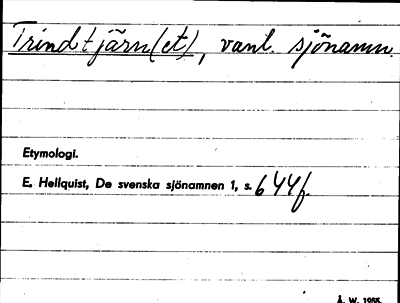 Trindtjärn(et), vanl. sjönamn.
Etymologi.
E. Hellquist, De svenska sjönamnen 1, s. 644 f.
Å. W. 1955.